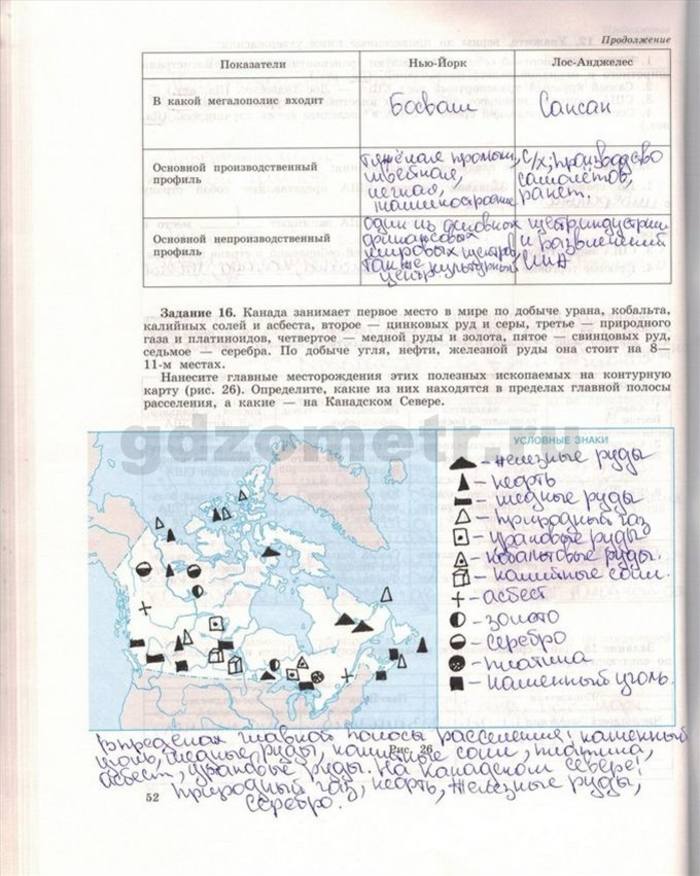 Продолжение
Показатели Нью-Йорк Лос-Анджелес
В какой мегалополис входит Босваш Сансан
Основной производственный профиль тяжёлая промышл, швейная, легкая, машиностроение с/х; производство самолетов, ракет.
Основной непроизводственный профиль один из основных финансовых мировых центров, также культурный центр центр индустрии и развлечений США
Задание 16. Канада занимает первое место в мире по добыче урана, кобальта,
калийных солей и асбеста, второе — цинковых руд и серы, третье — природного
газа и платиноидов, четвертое — медной руды и золота, пятое — свинцовых руд,
седьмое — серебра. По добыче угля, нефти, железной руды она стоит на 8—
11-м местах.
Нанесите главные месторождения этих полезных ископаемых на контурную
карту (рис. 26). Определите, какие из них находятся в пределах главной полосы
расселения, а какие — на Канадском Севере.
gdzometr.ru
УСЛОВНЫЕ ЗНАКИ
- железные руды
- нефть
- медные руды
- природный газ
- урановые руды
- кобальтовые руды.
- калийные соли.
- асбест
- золото
- серебро
- платина
- каменный уголь.
Рис. 26
В пределах главной полосы расселения: каменный
уголь, медные руды, калийные соли, платина,
асбест, урановые руды. На канадском севере:
природный газ, нефть, железные руды,
серебро.
52